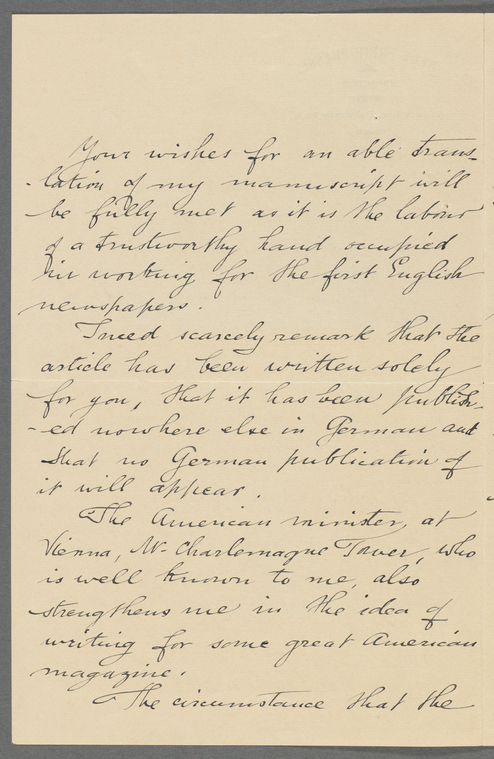 Your wishes for an able trans-
-lation of my manuscript will
be fully met as it is the labour
of a trustworthy hand occupied
in working for the first English
newspapers.
I need scarcely remark that the
article has been written solely
for you, that it has been publish-
-ed nowhere else in German and
that no German publication of
it will appear.
The American minister, at
Vienna, Mr. Charlemagne Tower, who
is well known to me, also
strengthens me in the idea of
writing for some great American
magazine.
The circumstance that the